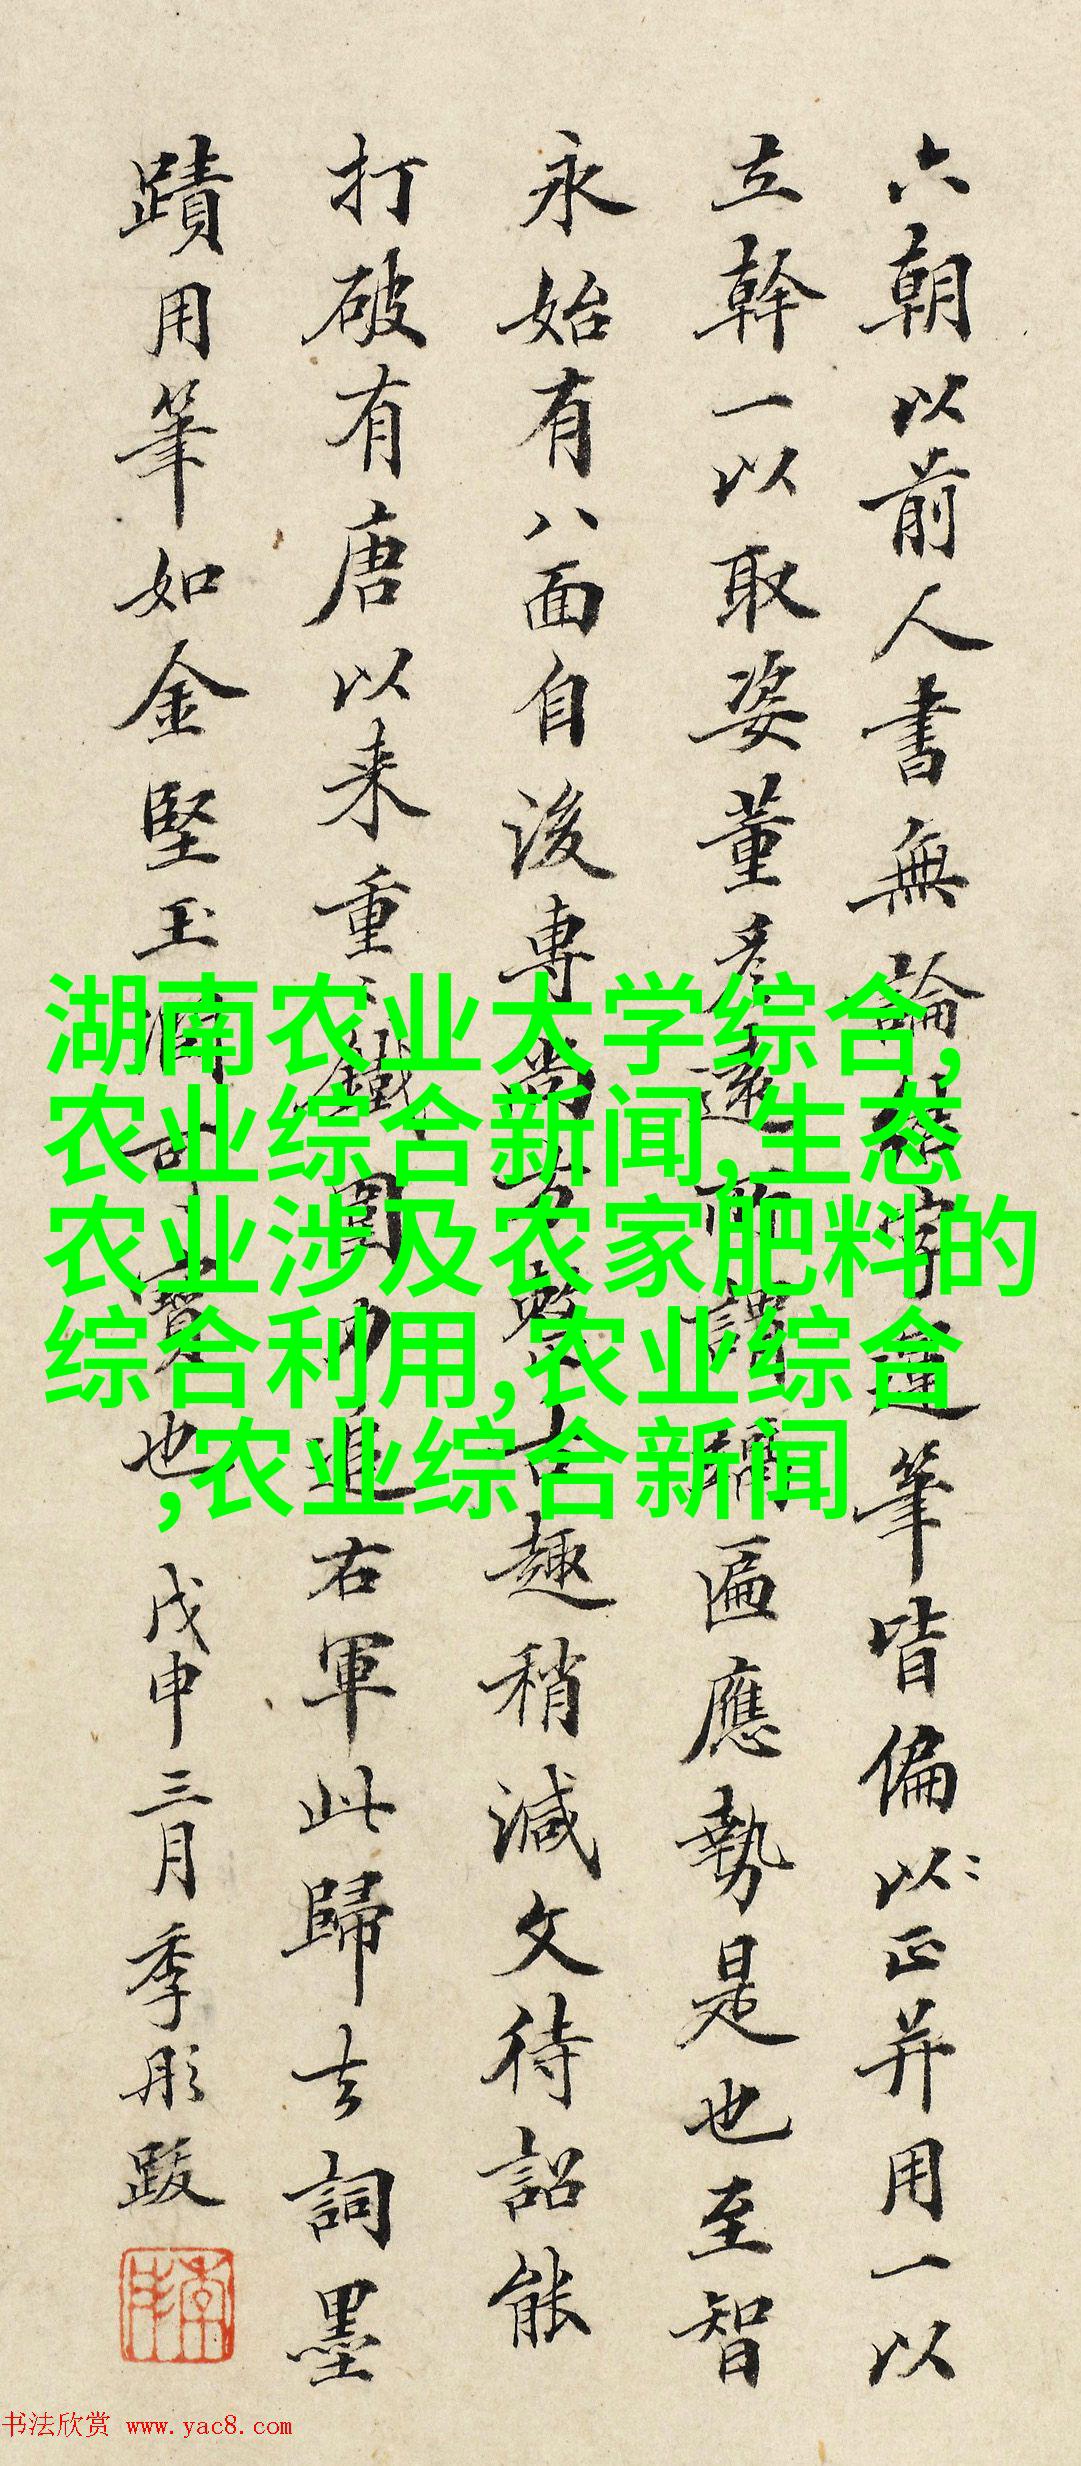 六朝以前人書無論
字運筆皆偏以正并用一以
立幹一以取姿董彦遠所謂
徧匝應勢是也至智
永始有八面自後專尚
古趣稍減文待詔能
打破有唐以来重重鐵圍
追右軍此歸去詞墨
蹟用筆如金堅玉潤可寶也
戊申三月季彤跋
湖南农业大学综合,
农业综合新闻,生态
农业涉及农家肥料的
综合利用,农业综合
,农业综合新闻
书法欣赏 www.yac8.com